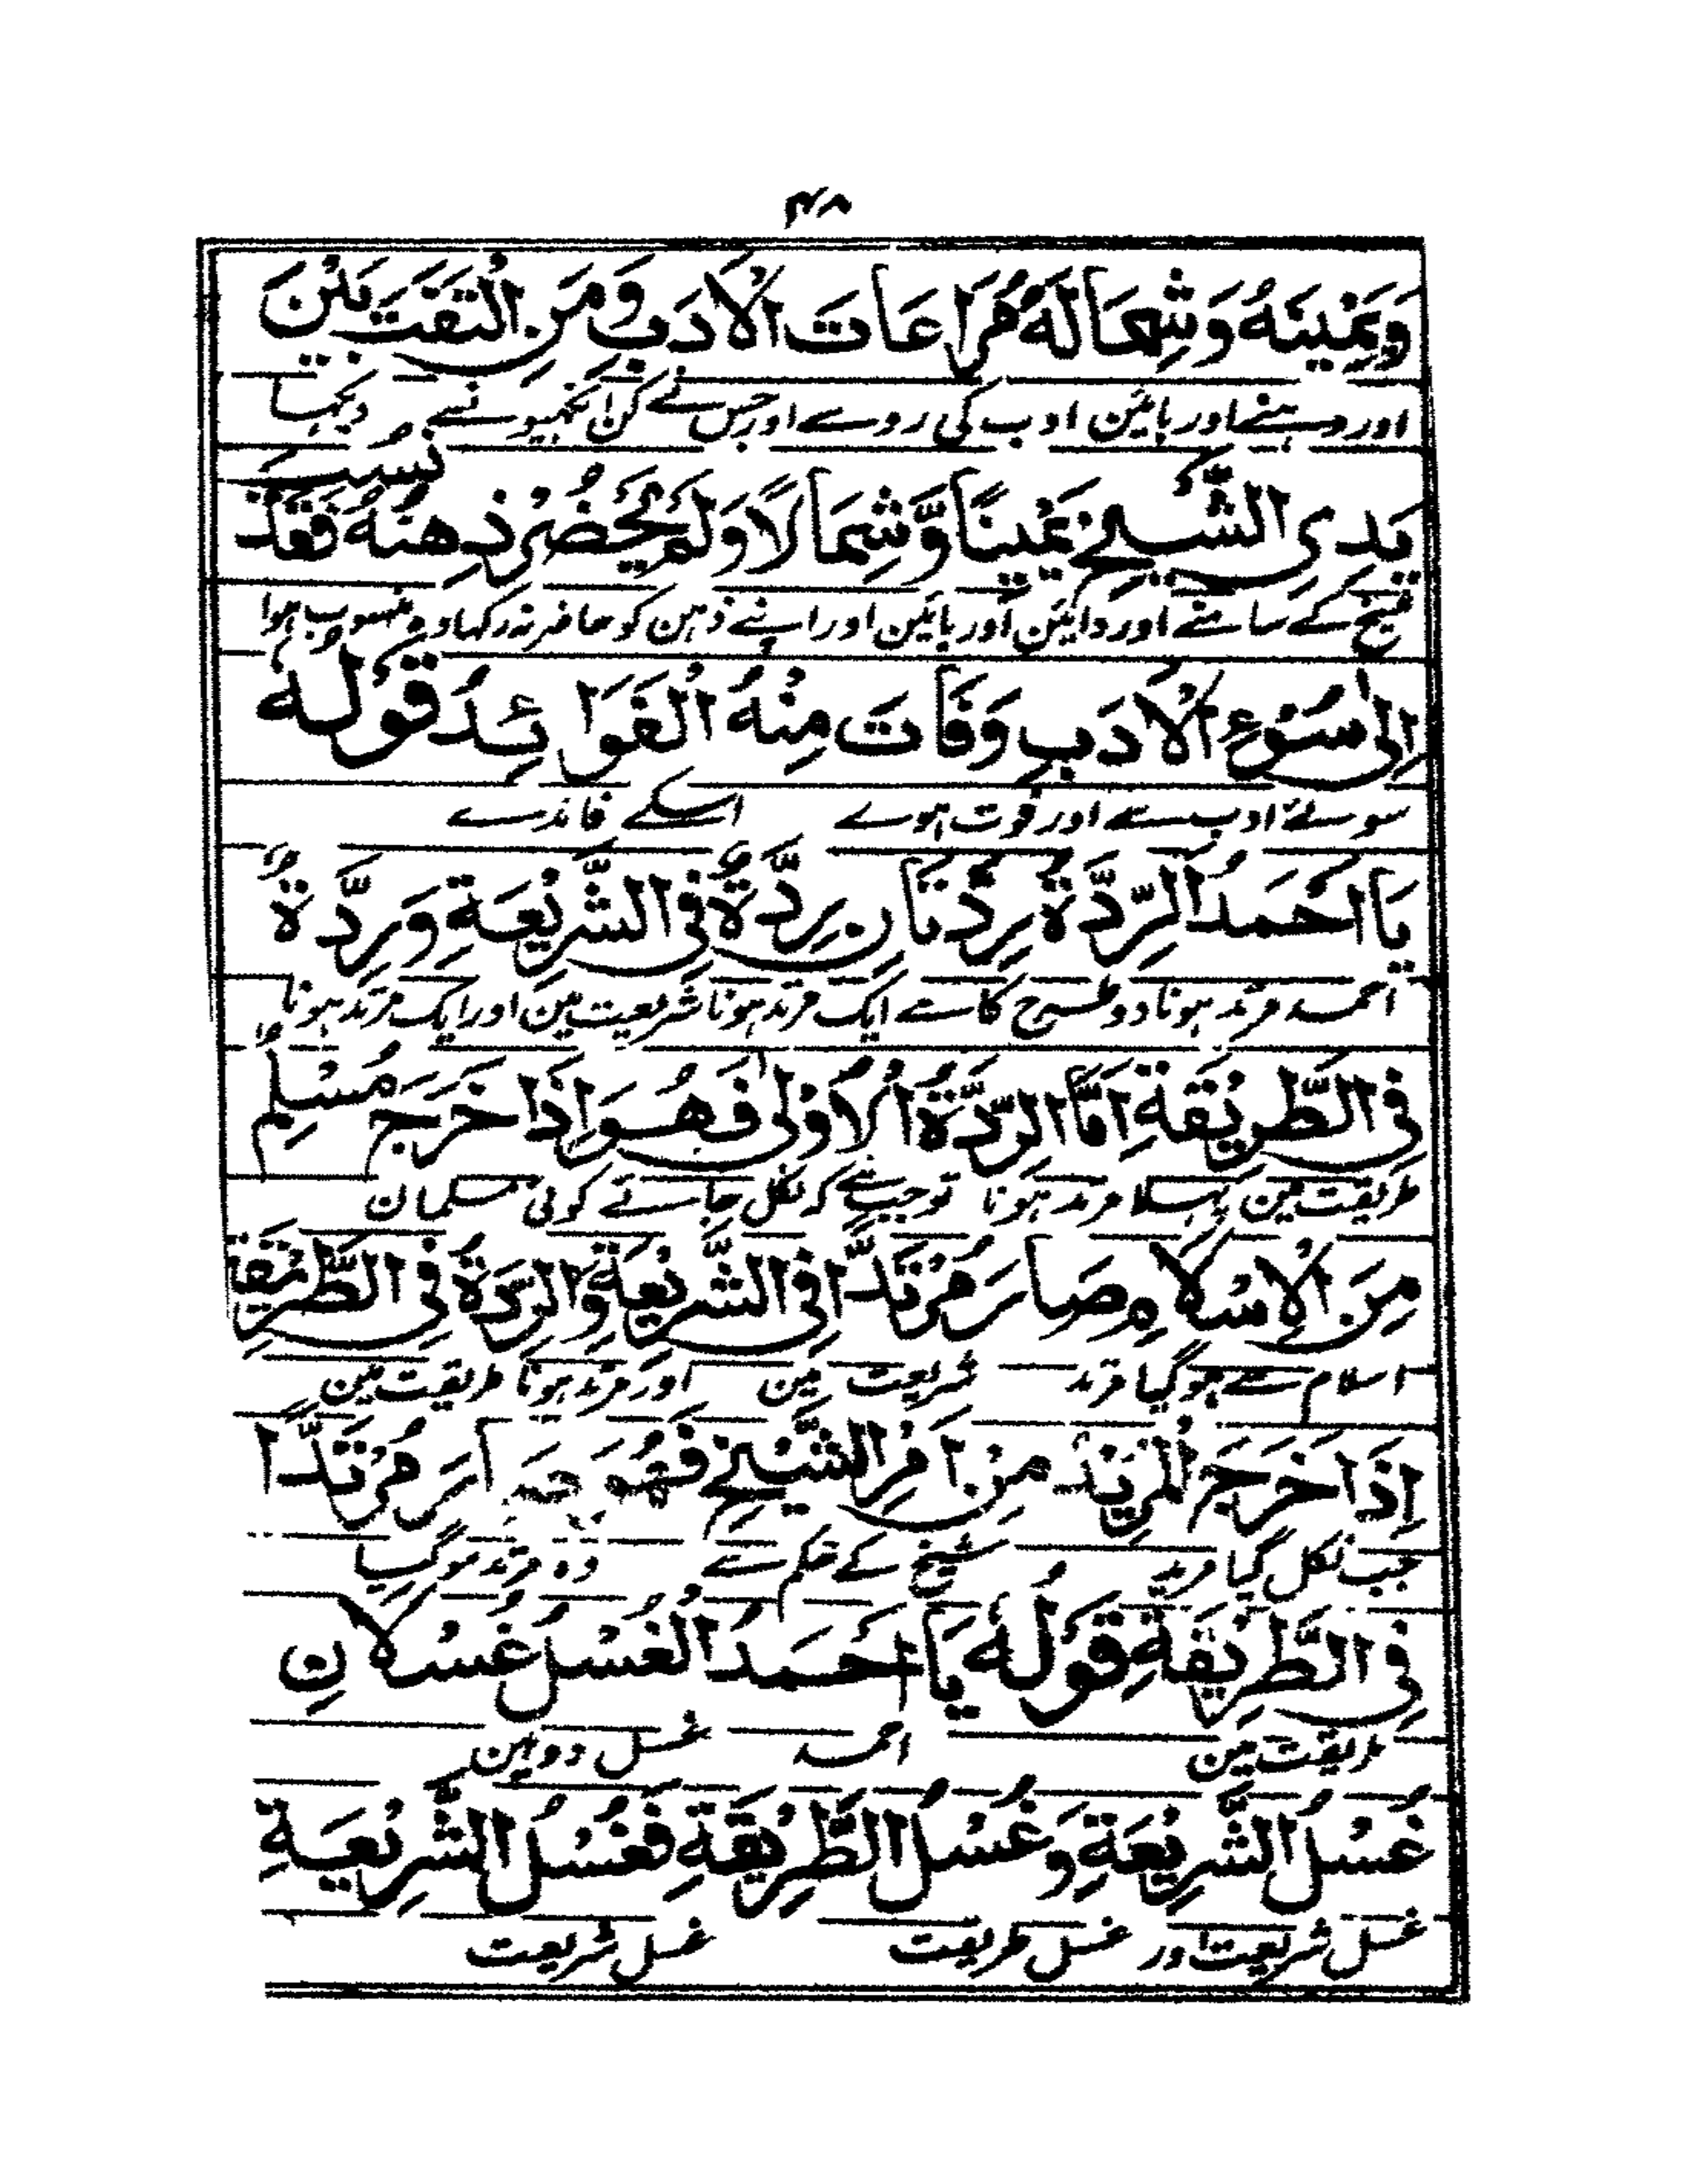 ۴۸
وَيَمِيْنَهُ وَشِمَالَهُ مُرَاعَاتَ الْاَدَبِ وَمَنِ الْتَفَتَ بَيْنَ
اور دہنے اور بائین ادب کی روسے اور جس نے کن انکھیونسے دیکہا
يَدَىِ الشَّيْخِ يَمِيْنًا وَّشِمَالًا وَلَمْ يُحْضُرْ ذِهْنُهُ فَقَدْ نُسِبَ
شیخ کے سامنے اور دائین اور بائین اور اپنے ذہن کو حاضر نہ رکہا وہ منسوب ہوا
اِلٰى سُوْءِ الْاَدَبِ وَفَاتَ مِنْهُ الْفَوَائِدُ قَوْلُهُ
سوئے ادب سے اور فوت ہوے اسکے فائدے
يَا اَحْمَدُ الرِّدَّةُ رِدَّتَانِ رِدَّةٌ فِى الشَّرِيْعَةِ وَرِدَّةٌ
احمد مرتد ہونا دو طرح کا ہے ایک مرتد ہونا شریعت مین اور ایک مرتد ہونا
فِى الطَّرِيْقَةِ اَمَّا الرِّدَّةُ الْاُوْلٰى فَهُوَ اِذَا خَرَجَ مُسْلِمٌ
طریقت مین پہلا مرتد ہونا تو جب ہے کہ نکل جائے کوئی مسلمان
مِنَ الْاِسْلَامِ صَارَ مُرْتَدًّا فِى الشَّرِيْعَةِ وَالرِّدَّةُ فِى الطَّرِيْقَةِ
اسلام سے ہوگیا مرتد شریعت مین اور مرتد ہونا طریقت مین
اِذَا خَرَجَ الْمُرِيْدُ مِنْ اَمْرِ الشَّيْخِ فَهُوَ صَارَ مُرْتَدًّا
جب نکل گیا مرید شیخ کے حکم سے وہ مرتد ہوگیا
فِى الطَّرِيْقَةِ قَوْلُهُ يَا اَحْمَدُ الْغُسْلُ غُسْلَانِ
طریقت مین احمد غسل دو ہین
غُسْلُ الشَّرِيْعَةِ وَغُسْلُ الطَّرِيْقَةِ فَغُسْلُ الشَّرِيْعَةِ
غسل شریعت اور غسل طریقت غسل شریعت